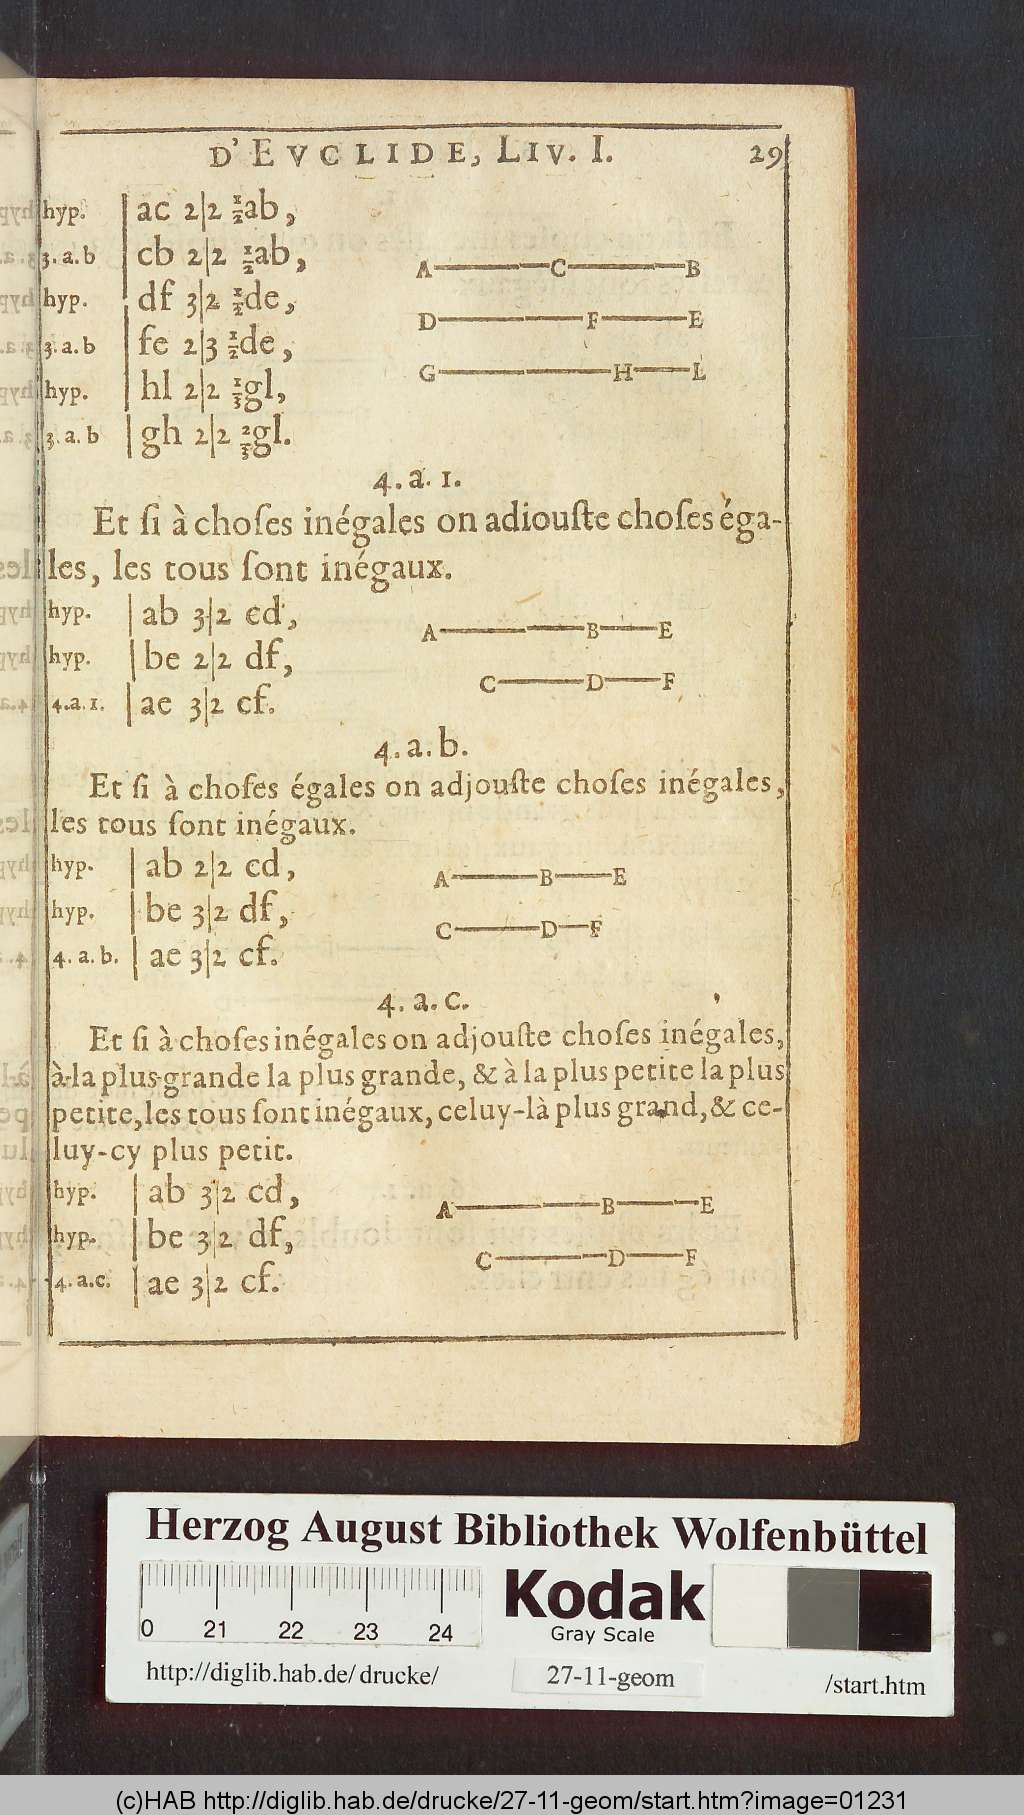 D' EVCLIDE, LIV. I. 29
hyp. | ac 2|2 ½ab,
3. a. b | cb 2|2 ½ab,
hyp. | df 3|2 ½de,
3. a. b | fe 2|3 ½de,
hyp. | hl 2|2 ⅓gl,
3. a. b | gh 2|2 ⅔gl.
A C B
D F E
G H L
4. a. 1.
Et ſi à choſes inégales on adiouſte choſes éga-
les, les tous ſont inégaux.
hyp. | ab 3|2 cd,
hyp. | be 2|2 df,
4.a. 1. | ae 3|2 cf.
A B E
C D F
4. a. b.
Et ſi à choſes égales on adjouſte choſes inégales,
les tous ſont inégaux.
hyp. | ab 2|2 cd,
hyp. | be 3|2 df,
4. a. b. | ae 3|2 cf.
A B E
C D F
4. a. c.
Et ſi à choſes inégales on adjouſte choſes inégales,
à la plus grande la plus grande, & à la plus petite la plus
petite, les tous ſont inégaux, celuy-là plus grand, & ce-
luy-cy plus petit.
hyp. | ab 3|2 cd,
hyp. | be 3|2 df,
4. a.c. | ae 3|2 cf.
A B E
C D F
Herzog August Bibliothek Wolfenbüttel
0 21 22 23 24
Kodak
Gray Scale
http://diglib.hab.de/ drucke/ 27-11-geom /start.htm
(c)HAB http://diglib.hab.de/drucke/27-11-geom/start.htm?image=01231